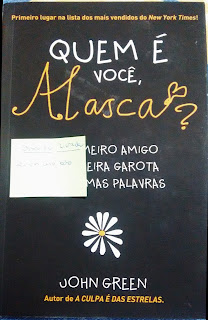 Primeiro lugar na lista dos mais vendidos do New York Times!
QUEM É
VOCÊ,
Alasca?
MEIRO AMIGO
EIRA GAROTA
MAS PALAVRAS
JOHN GREEN
Autor de A CULPA É DAS ESTRELAS.